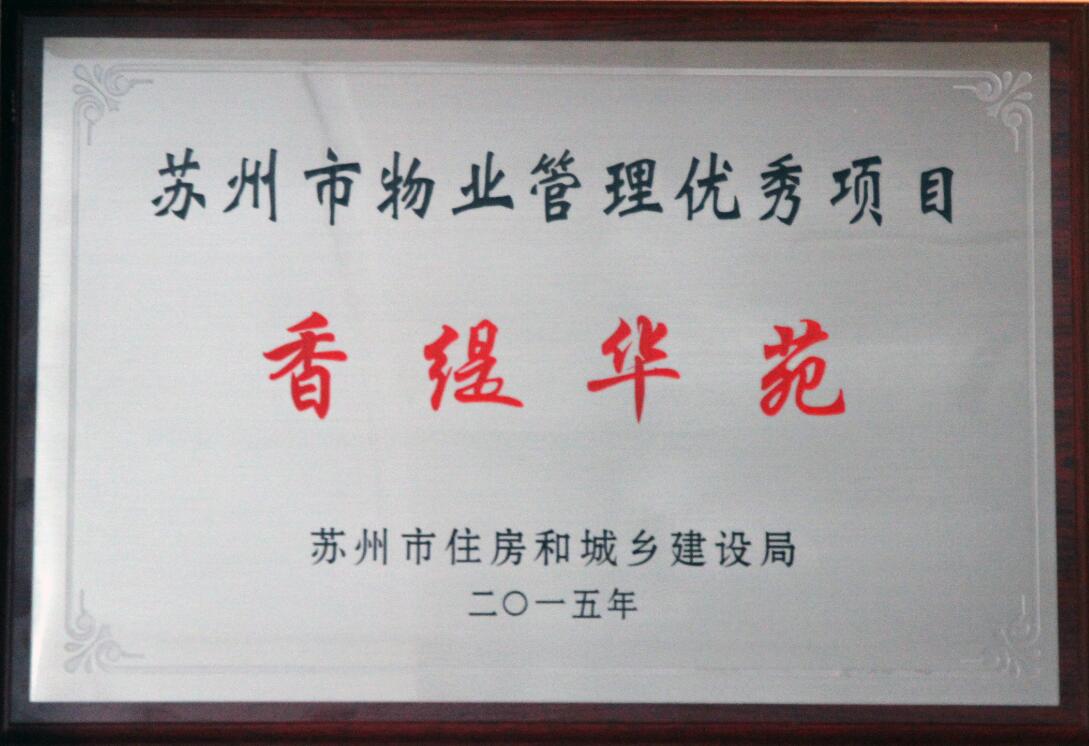 苏州市物业管理优秀项目
香缇华苑
苏州市住房和城乡建设局
二〇一五年